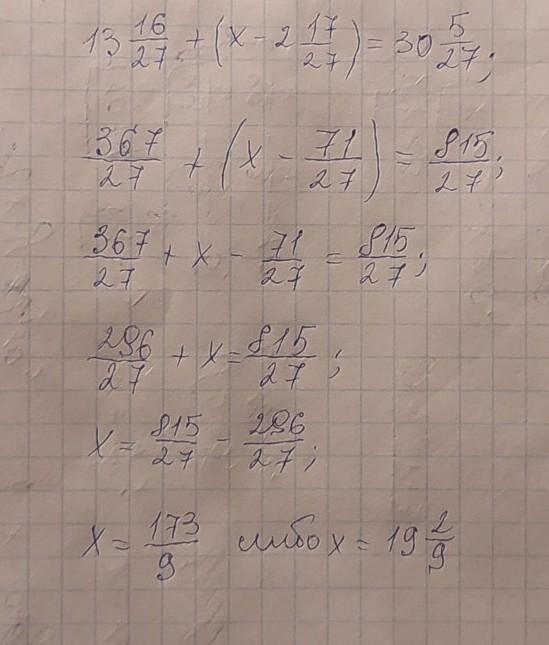 13 16/27 + (x - 2 17/27) = 30 5/27;
367/27 + (x - 71/27) = 815/27;
367/27 + x - 71/27 = 815/27;
296/27 + x = 815/27;
x = 815/27 - 296/27;
x = 173/9 либо x = 19 2/9